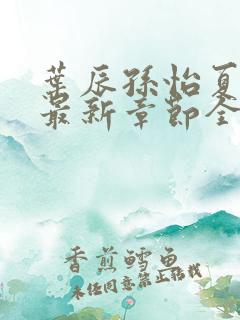 叶辰孙怡夏
最新章节全
香煎鳕鱼
未经同意禁止转载